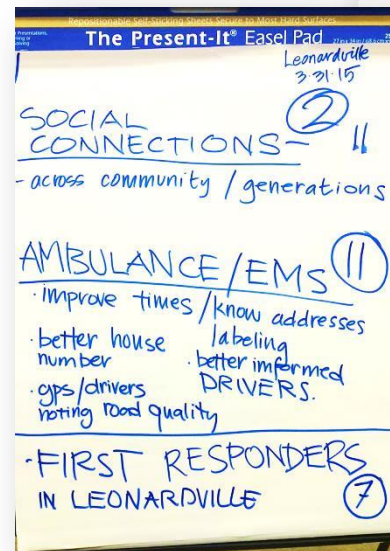 Repositionable Self-Sticking Sheets Secure to Most Hard Surfaces
The Present-It® Easel Pad
Leonardville
3·31·15
SOCIAL
CONNECTIONS- 2 11
- across community / generations
AMBULANCE/EMS 11
· improve times / know addresses
· better house labeling
number · better informed
· gps/drivers DRIVERS.
noting road quality
· FIRST RESPONDERS
IN LEONARDVILLE 7